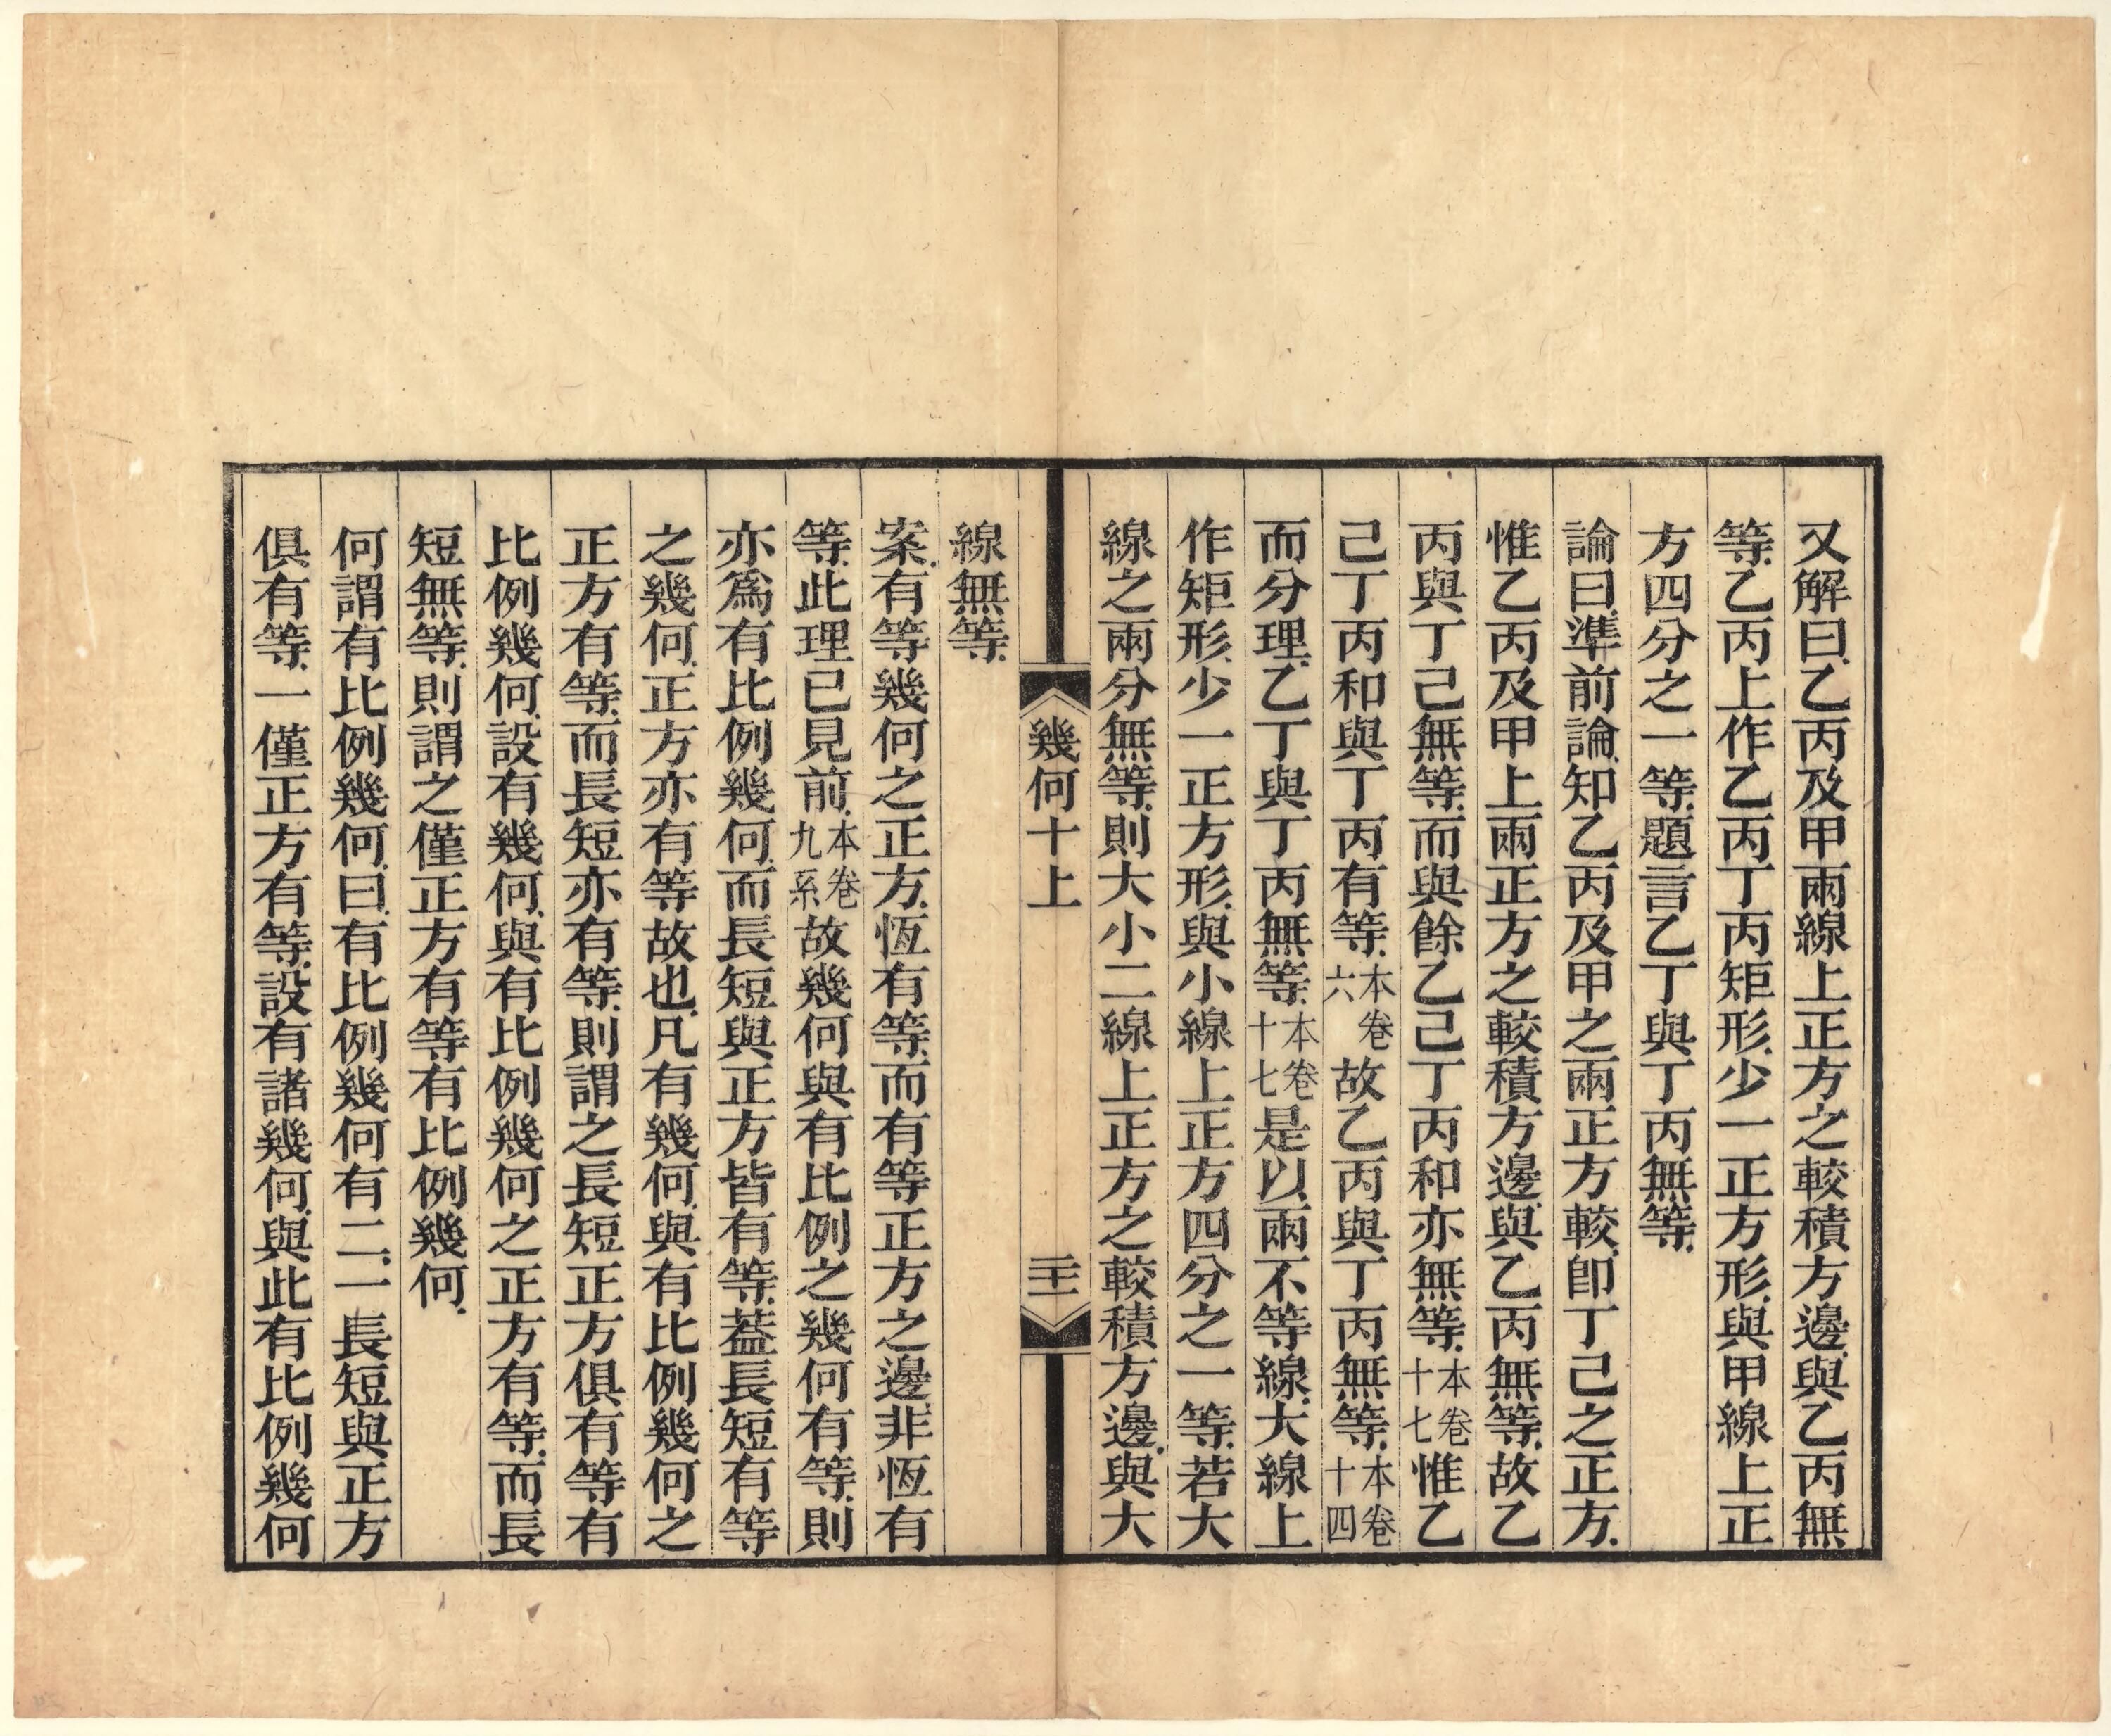 又解曰乙丙及甲兩線上正方之較積方邊與乙丙無
等乙丙上作乙丙丁丙矩形少一正方形與甲線上正
方四分之一等題言乙丁與丁丙無等
論曰準前論知乙丙及甲之兩正方較卽丁己之正方
惟乙丙及甲上兩正方之較積方邊與乙丙無等故乙
丙與丁己無等而與餘乙己丁丙和亦無等本卷十七惟乙
己丁丙和與丁丙有等本卷六故乙丙與丁丙無等本卷十四
而分理乙丁與丁丙無等本卷十七是以兩不等線大線上
作矩形少一正方形與小線上正方四分之一等若大
線之兩分無等則大小二線上正方之較積方邊與大
幾何十上
二十一
線無等
案有等幾何之正方恆有等而有等正方之邊非恆有
等此理已見前本卷九系故幾何與有比例之幾何有等則
亦爲有比例幾何而長短與正方皆有等葢長短有等
之幾何正方亦有等故也凡有幾何與有比例幾何之
正方有等而長短亦有等則謂之長短正方俱有等有
比例幾何設有幾何與有比例幾何之正方有等而長
短無等則謂之僅正方有等有比例幾何
何謂有比例幾何曰有比例幾何有二一長短與正方
俱有等一僅正方有等設有諸幾何與此有比例幾何